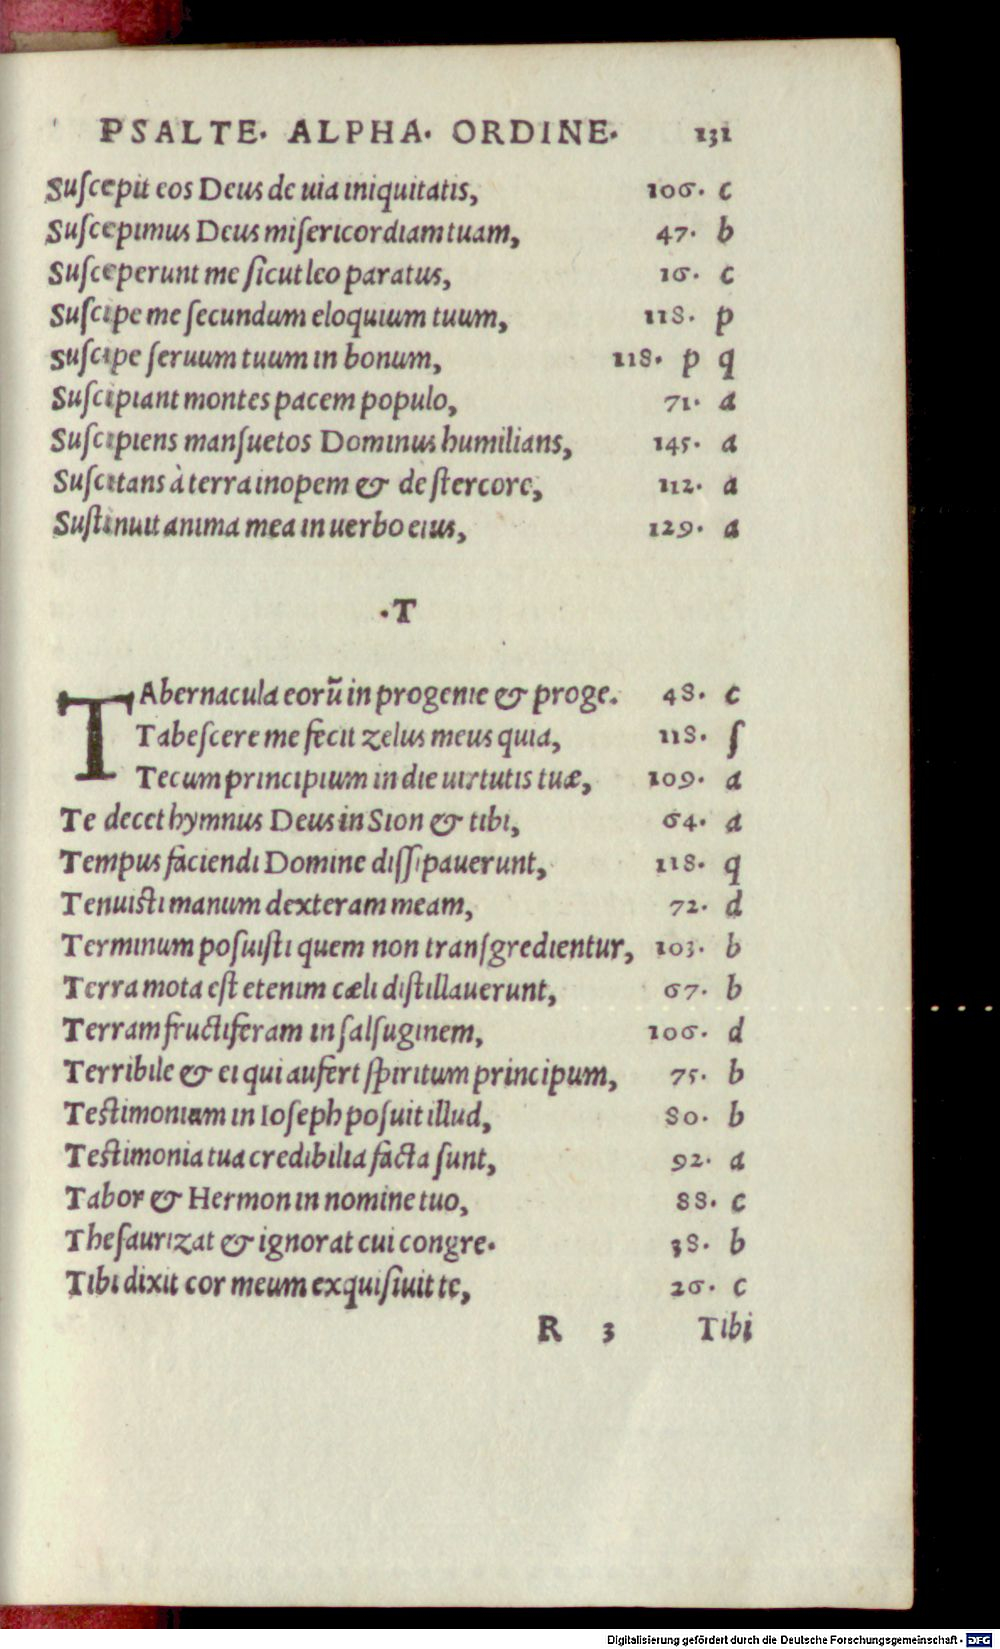 PSALTE. ALPHA. ORDINE. 131
Suſcepit eos Deus de uia iniquitatis, 106. c
Suſcepimus Deus miſericordiam tuam, 47. b
Suſceperunt me ſicut leo paratus, 16. c
Suſcipe me ſecundum eloquium tuum, 118. p
Suſcipe ſeruum tuum in bonum, 118. p q
Suſcipiant montes pacem populo, 71. a
Suſcipiens manſuetos Dominus humilians, 145. a
Suſcitans à terra inopem & de ſtercore, 112. a
Suſtinuit anima mea in uerbo eius, 129. a
.T
TAbernacula eorũ in progenie & proge. 48. c
Tabeſcere me fecit zelus meus quia, 118. ſ
Tecum principium in die uirtutis tuæ, 109. a
Te decet hymnus Deus in Sion & tibi, 64. a
Tempus faciendi Domine diſſipauerunt, 118. q
Tenuiſti manum dexteram meam, 72. d
Terminum poſuiſti quem non tranſgredientur, 103. b
Terra mota eſt etenim cæli diſtillauerunt, 67. b
Terram fructiferam in ſalſuginem, 106. d
Terribile & ei qui aufert ſpiritum principum, 75. b
Teſtimonium in Ioſeph poſuit illud, 80. b
Teſtimonia tua credibilia facta ſunt, 92. a
Tabor & Hermon in nomine tuo, 88. c
Theſaurizat & ignorat cui congre. 38. b
Tibi dixit cor meum exquiſiuit te, 26. c
R 3 Tibi
Digitalisierung gefördert durch die Deutsche Forschungsgemeinschaft - DFG